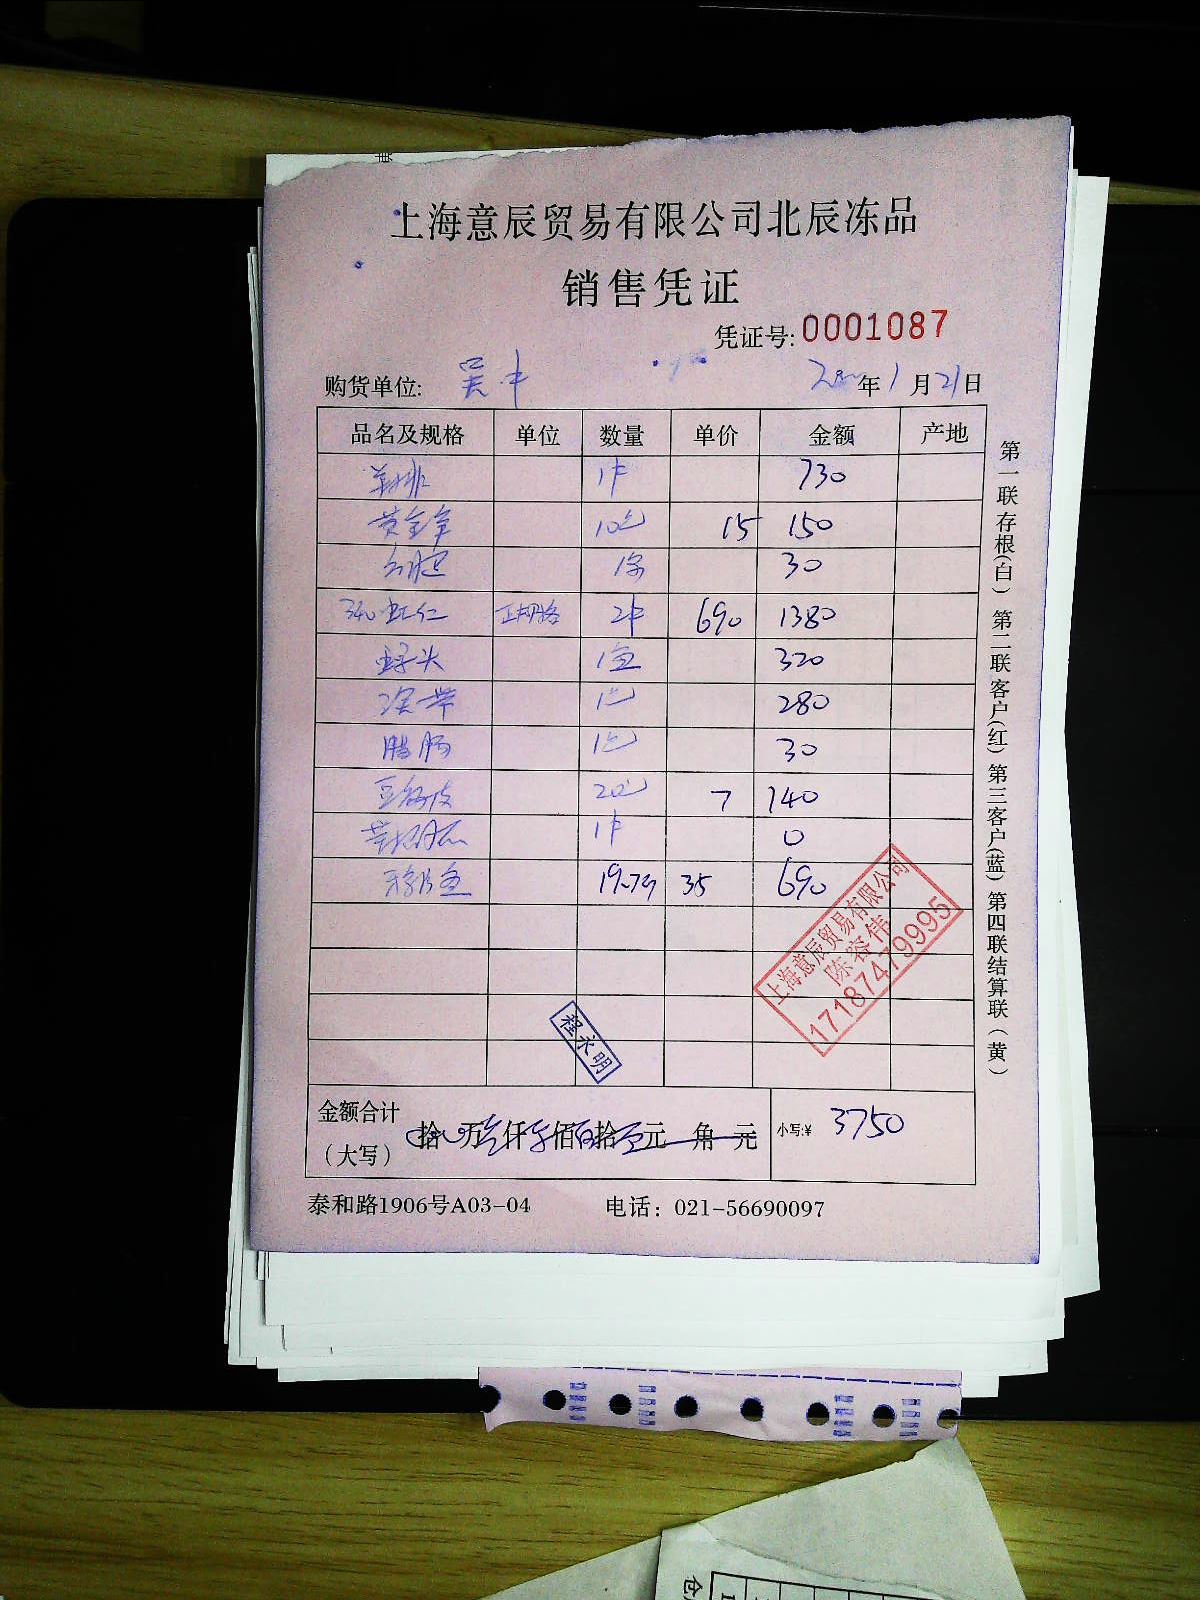 上海意辰贸易有限公司北辰冻品
销售凭证
凭证号: 0001087
购货单位: 吴中 年1月21日
品名及规格 单位 数量 单价 金额 产地
1件 730
黄金羊 10包 15 150
30
340虾仁 2件 690 1380
头 1盒 320
带 1包 280
腊肠 1包 30
20包 7 140
1件 0
鱼 19.7 35 690
上海意辰贸易有限公司
陈容伟
17187479995
程永明
金额合计
(大写) 拾 万 仟 佰 拾 元 角 元 小写:¥ 3750
泰和路1906号A03-04 电话: 021-56690097
第一联存根(白) 第二联客户(红) 第三客户(蓝) 第四联结算联(黄)